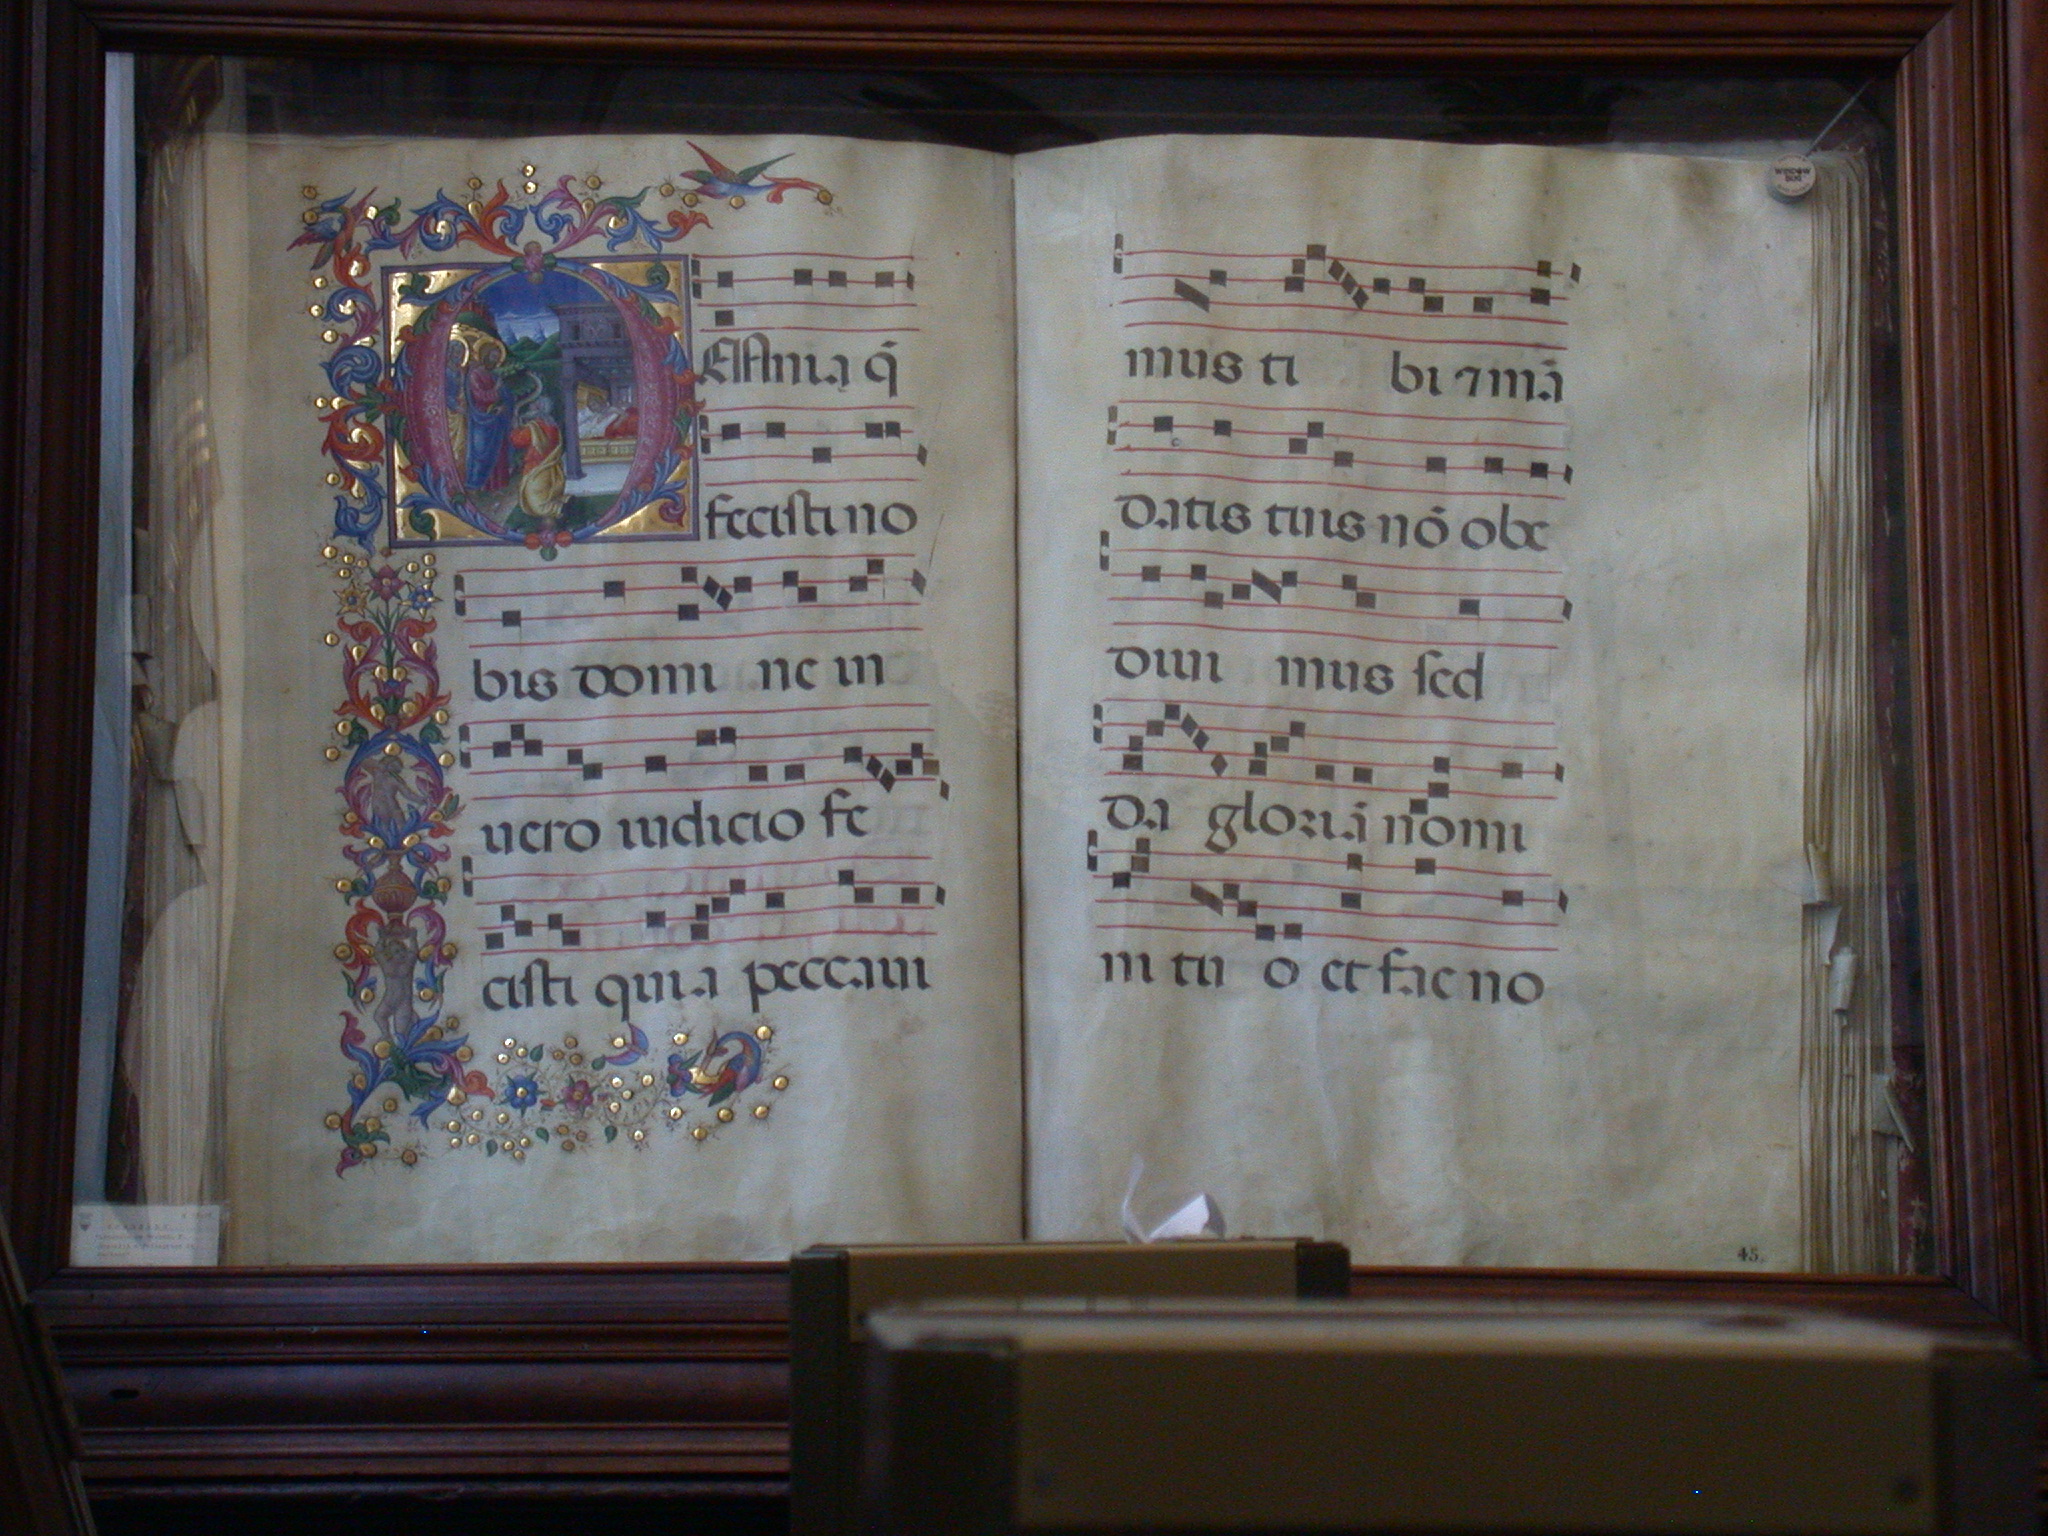 OMnia q̄
fecisti no
bis domi ne in
uero iudicio fe
cisti quia peccaui
mus ti bi ⁊ mā
datis tuis nō obe
diui mus sed
da gloriā nomi
ni tu o et fac no
45
WINDOW